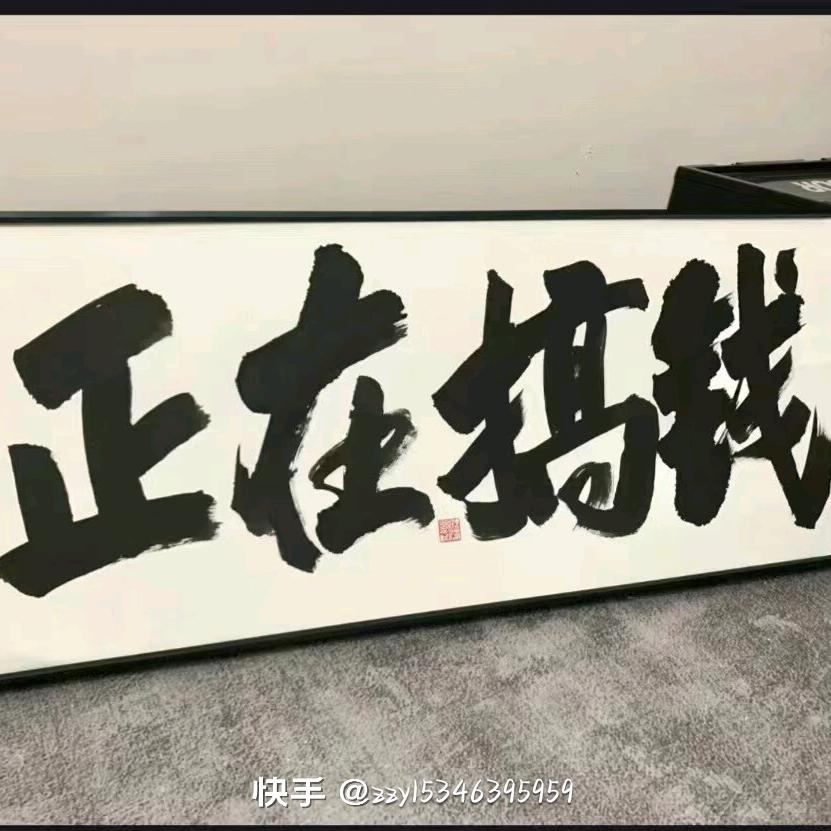 正在搞钱
快手 @zzy15346395959